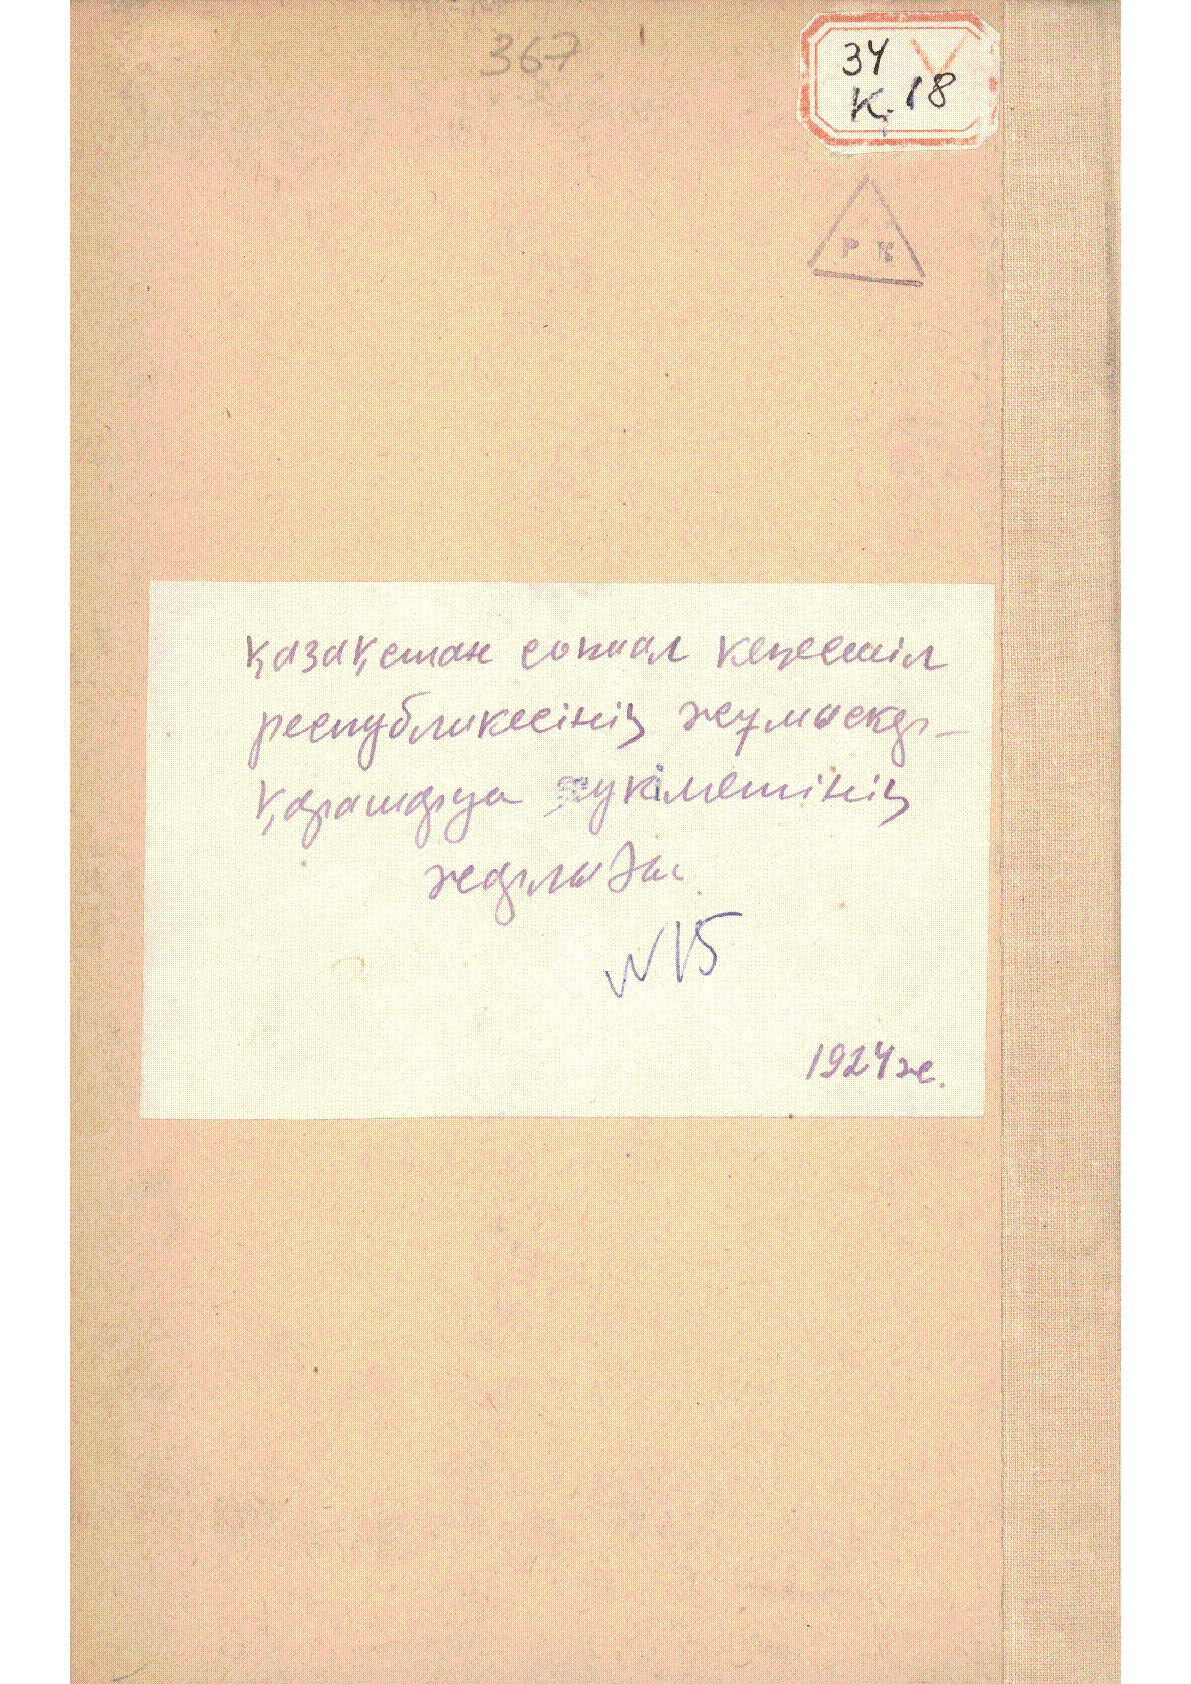 367
34
Қ 18
Р К
Қазақстан сопиал кеңесшіл
республикесінің жұмыскр-
Қараштруа үкіметінің
№ 15
1924 ж.